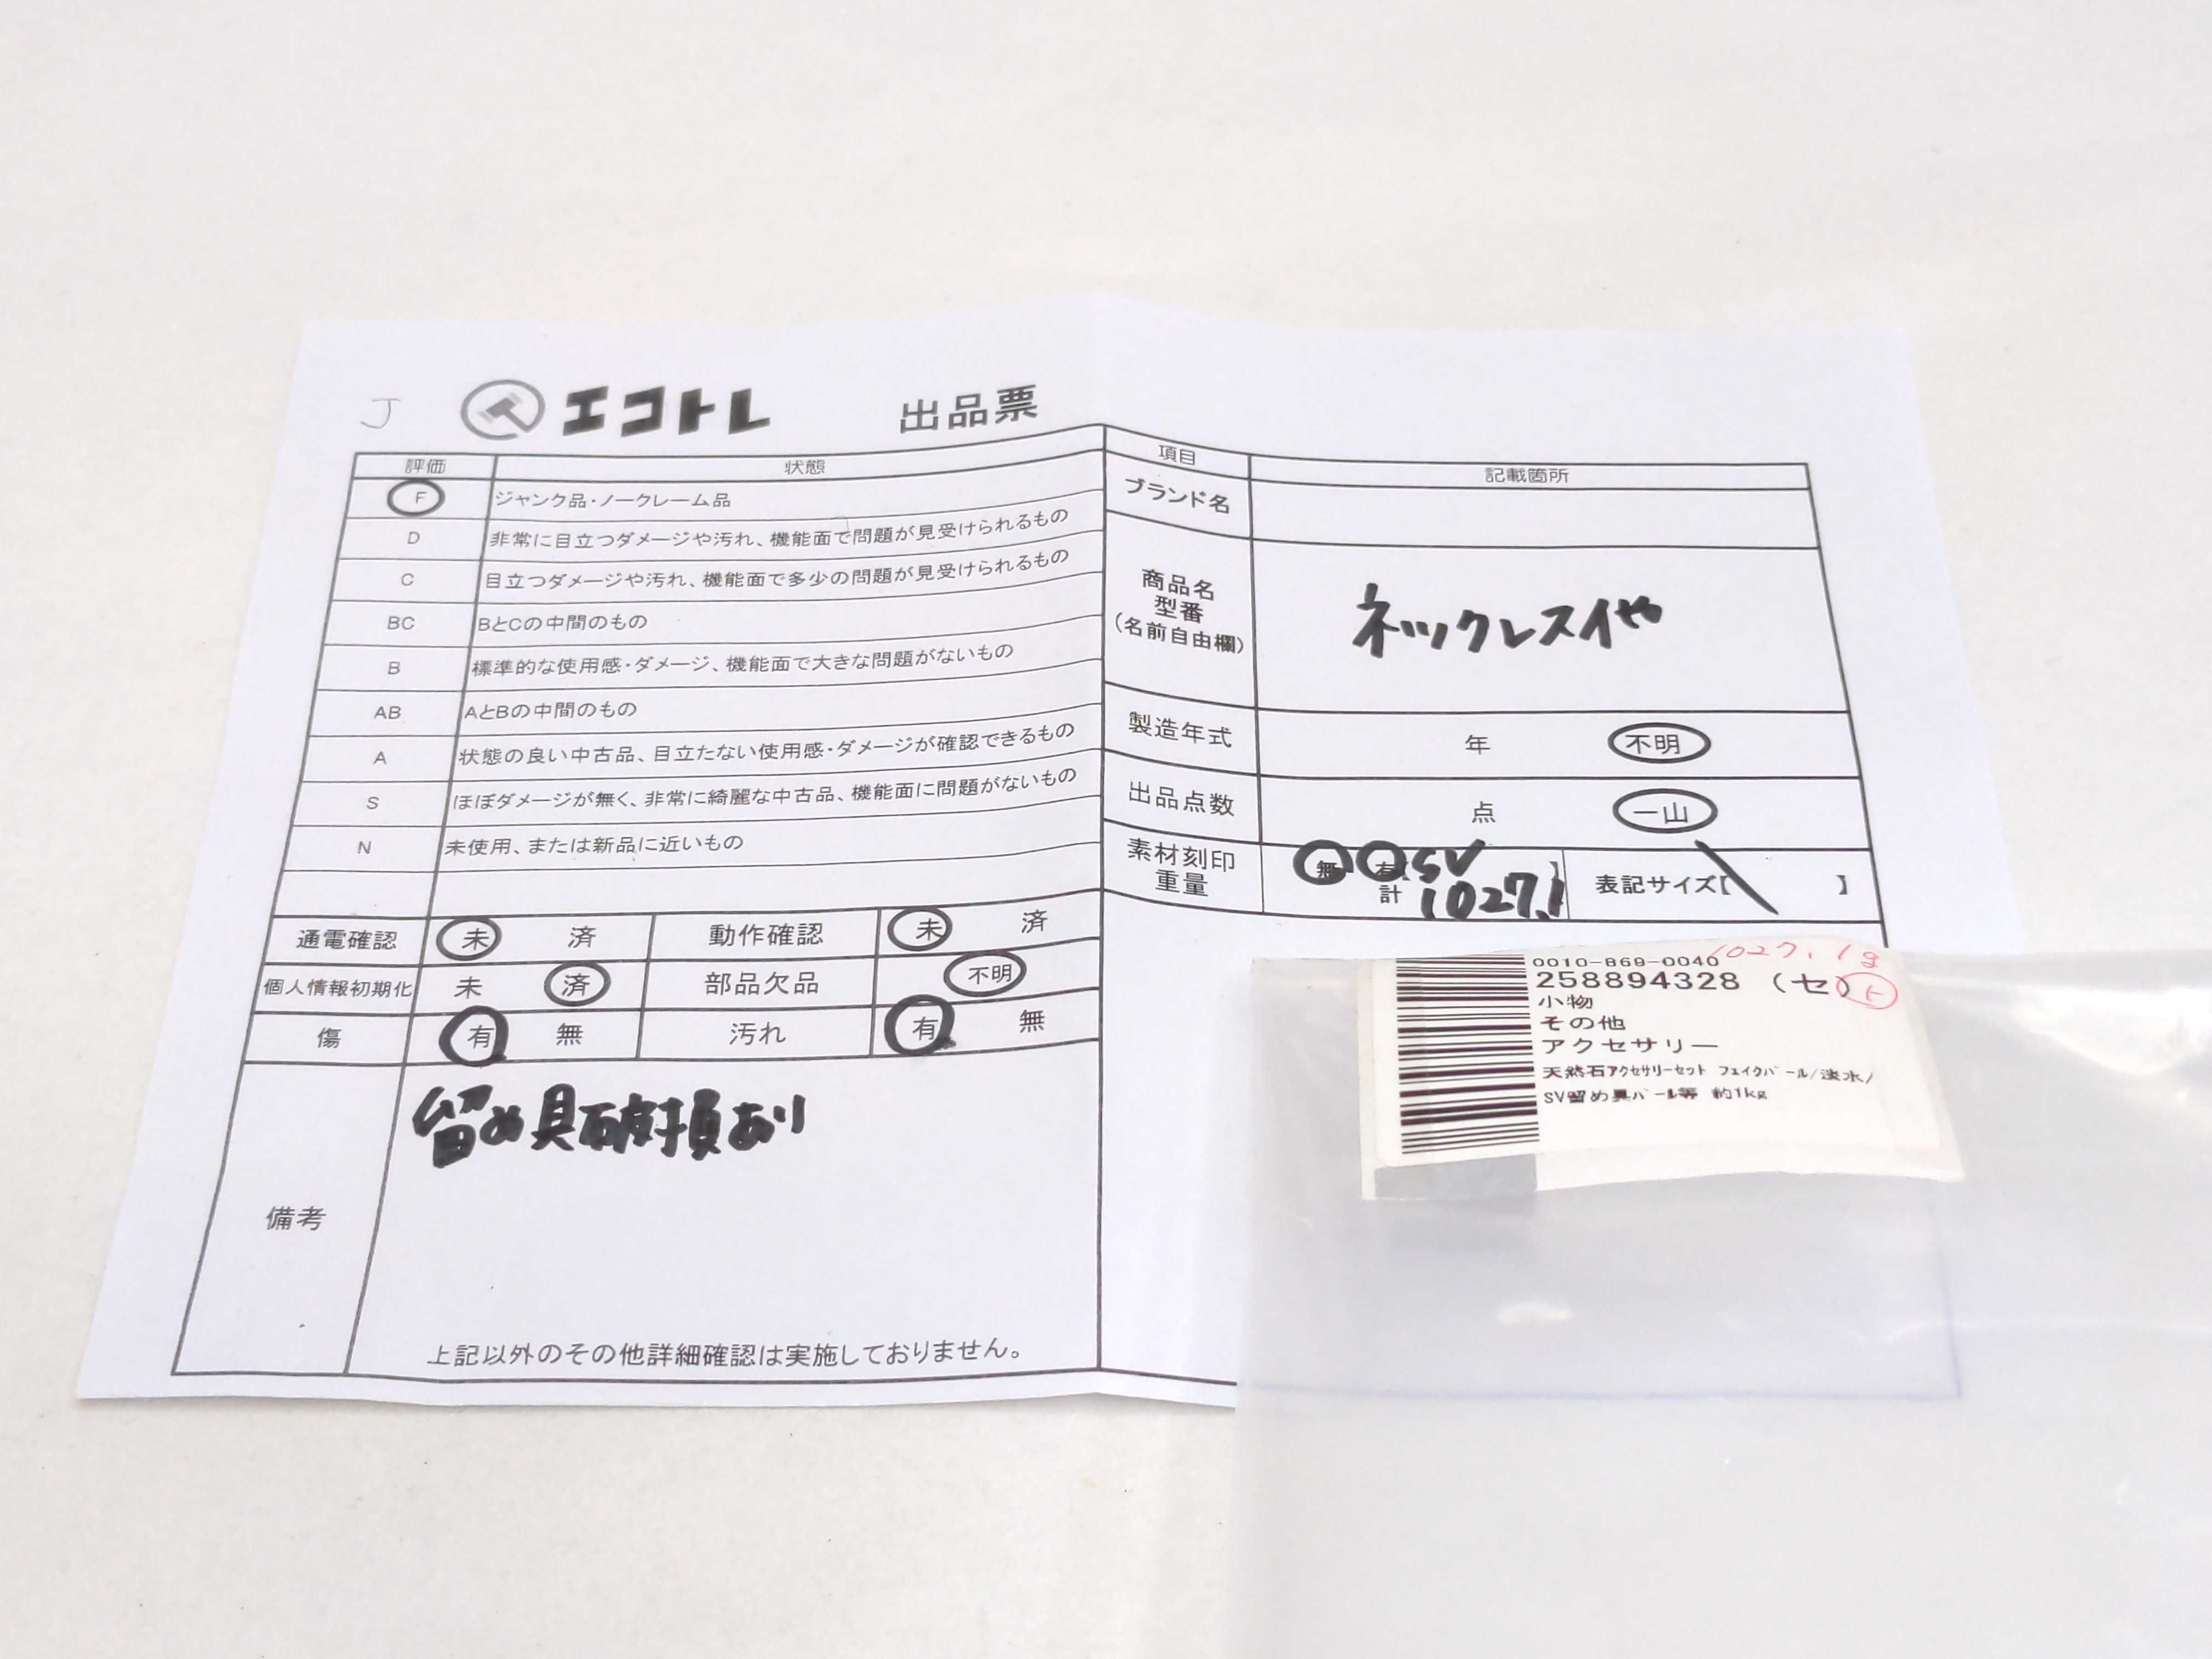 J エコトレ 出品票
評価 状態
F ジャンク品・ノークレーム品
D 非常に目立つダメージや汚れ、機能面で問題が見受けられるもの
C 目立つダメージや汚れ、機能面で多少の問題が見受けられるもの
BC BとCの中間のもの
B 標準的な使用感・ダメージ、機能面で大きな問題がないもの
AB AとBの中間のもの
A 状態の良い中古品、目立たない使用感・ダメージが確認できるもの
S ほぼダメージが無く、非常に綺麗な中古品、機能面に問題がないもの
N 未使用、または新品に近いもの
通電確認 未 済 動作確認 未 済
個人情報初期化 未 済 部品欠品 不明
傷 有 無 汚れ 有 無
備考
留め具破損あり
上記以外のその他詳細確認は実施しておりません。
項目 記載箇所
ブランド名
商品名
型番
(名前自由欄)
ネックレスイや
製造年式 年 不明
出品点数 点 一山
素材刻印
重量
無・有【SV】
計 1027.1
表記サイズ【 】
1027.1g
0010-869-0040
258894328 (セ) ト
小物
その他
アクセサリー
天然石アクセサリーセット フェイクパール/淡水/
SV留め具パール等 約1kg